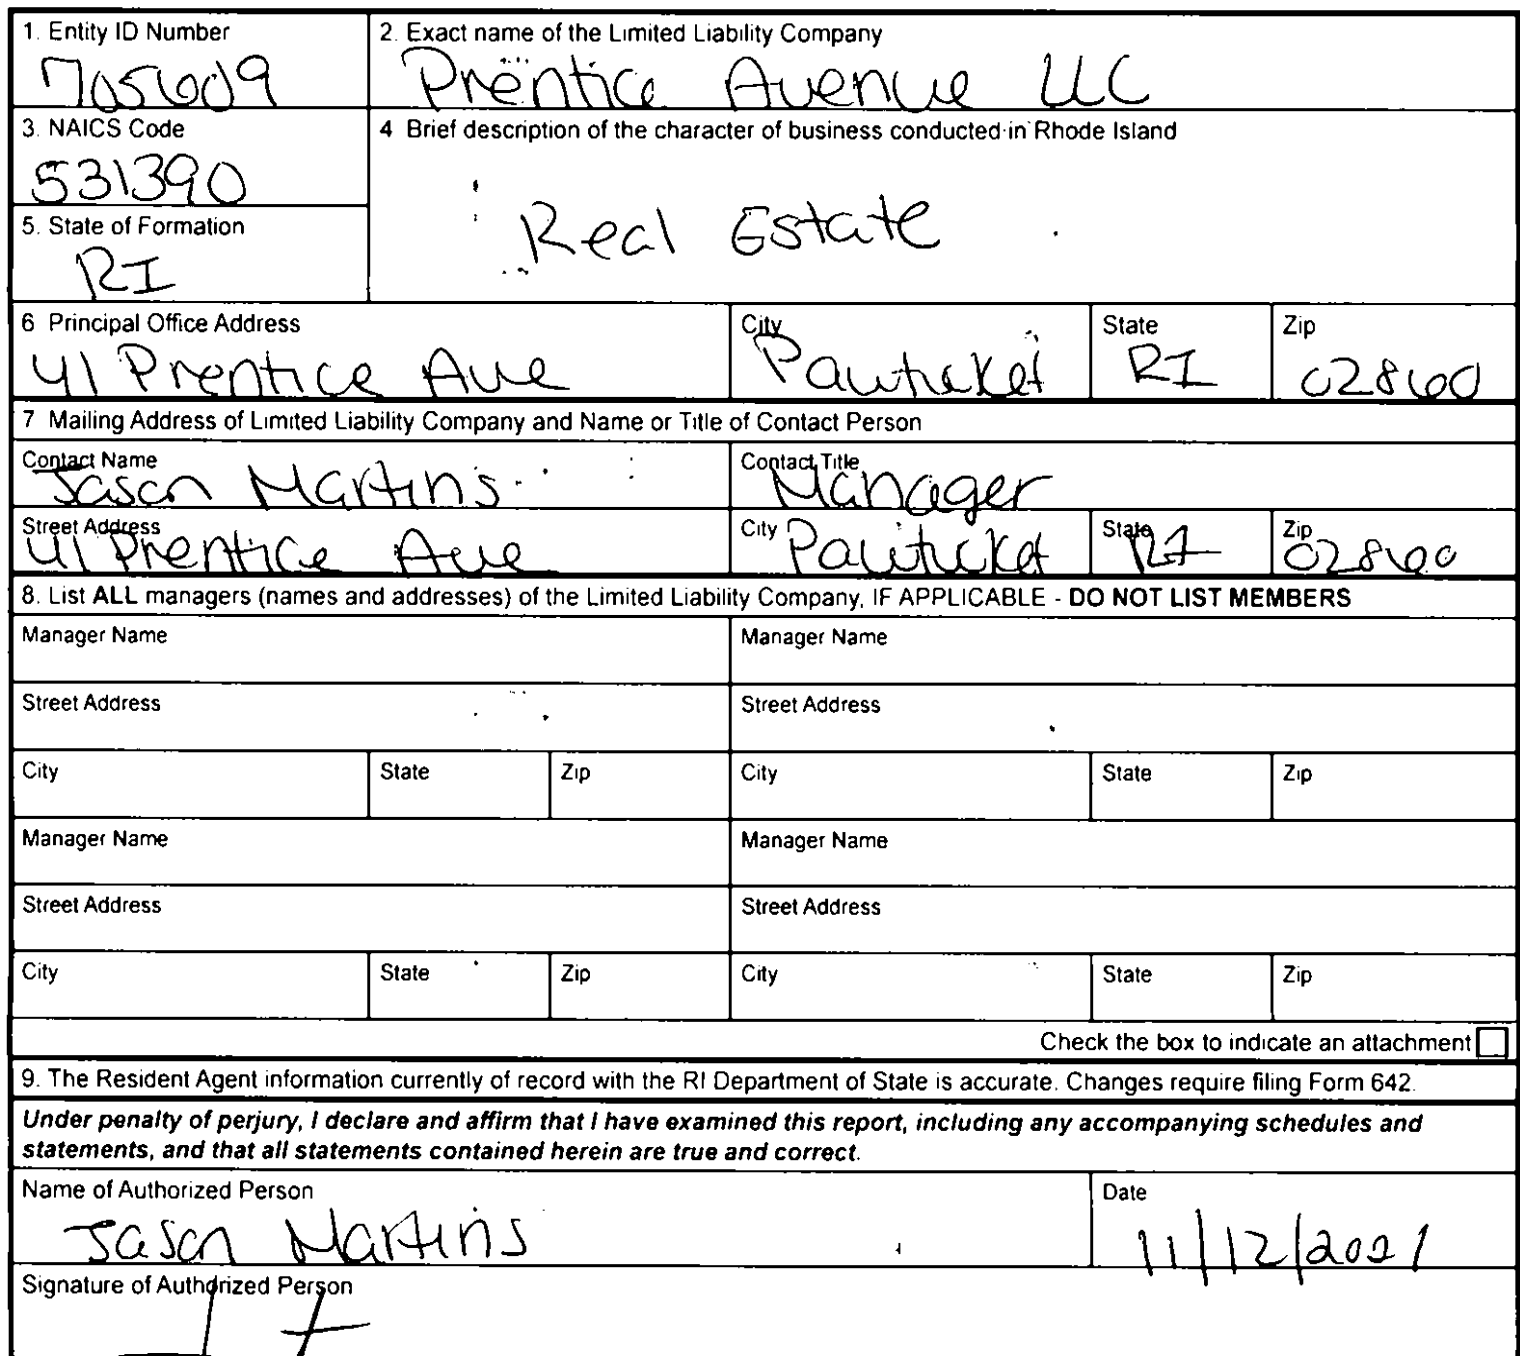 1. Entity ID Number
705609
2. Exact name of the Limited Liability Company
Prentice Avenue LLC
3. NAICS Code
531390
4 Brief description of the character of business conducted in Rhode Island
Real Estate
5. State of Formation
RI
6 Principal Office Address
41 Prentice Ave
City
Pawtucket
State
RI
Zip
02860
7 Mailing Address of Limited Liability Company and Name or Title of Contact Person
Contact Name
Jason Martins
Contact Title
Manager
Street Address
41 Prentice Ave
City
Pawtucket
State
RI
Zip
02860
8. List ALL managers (names and addresses) of the Limited Liability Company, IF APPLICABLE - DO NOT LIST MEMBERS
Manager Name
Manager Name
Street Address
Street Address
City
State
Zip
City
State
Zip
Manager Name
Manager Name
Street Address
Street Address
City
State
Zip
City
State
Zip
Check the box to indicate an attachment
9. The Resident Agent information currently of record with the RI Department of State is accurate. Changes require filing Form 642.
Under penalty of perjury, I declare and affirm that I have examined this report, including any accompanying schedules and
statements, and that all statements contained herein are true and correct.
Name of Authorized Person
Jason Martins
Date
11/12/2021
Signature of Authorized Person